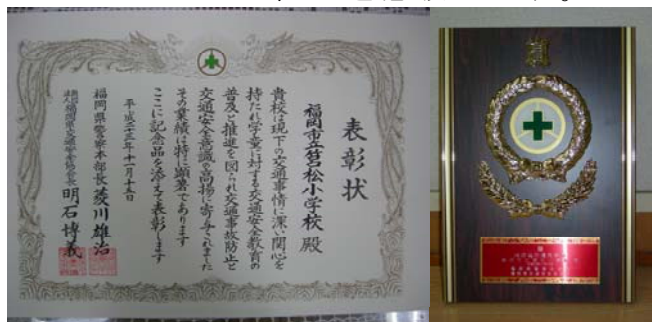 表彰状
福岡市立筥松小学校 殿
貴校は現下の交通事情に深い関心を
持たれ学童に対する交通安全教育の
普及と推進を図られ交通事故防止と
交通安全意識の高揚に寄与されました
その業績は特に顕著であります
ここに記念品を添えて表彰します
平成二十三年十一月十七日
福岡県警察本部長 菱川雄治
福岡県交通安全協会会長 明石博義